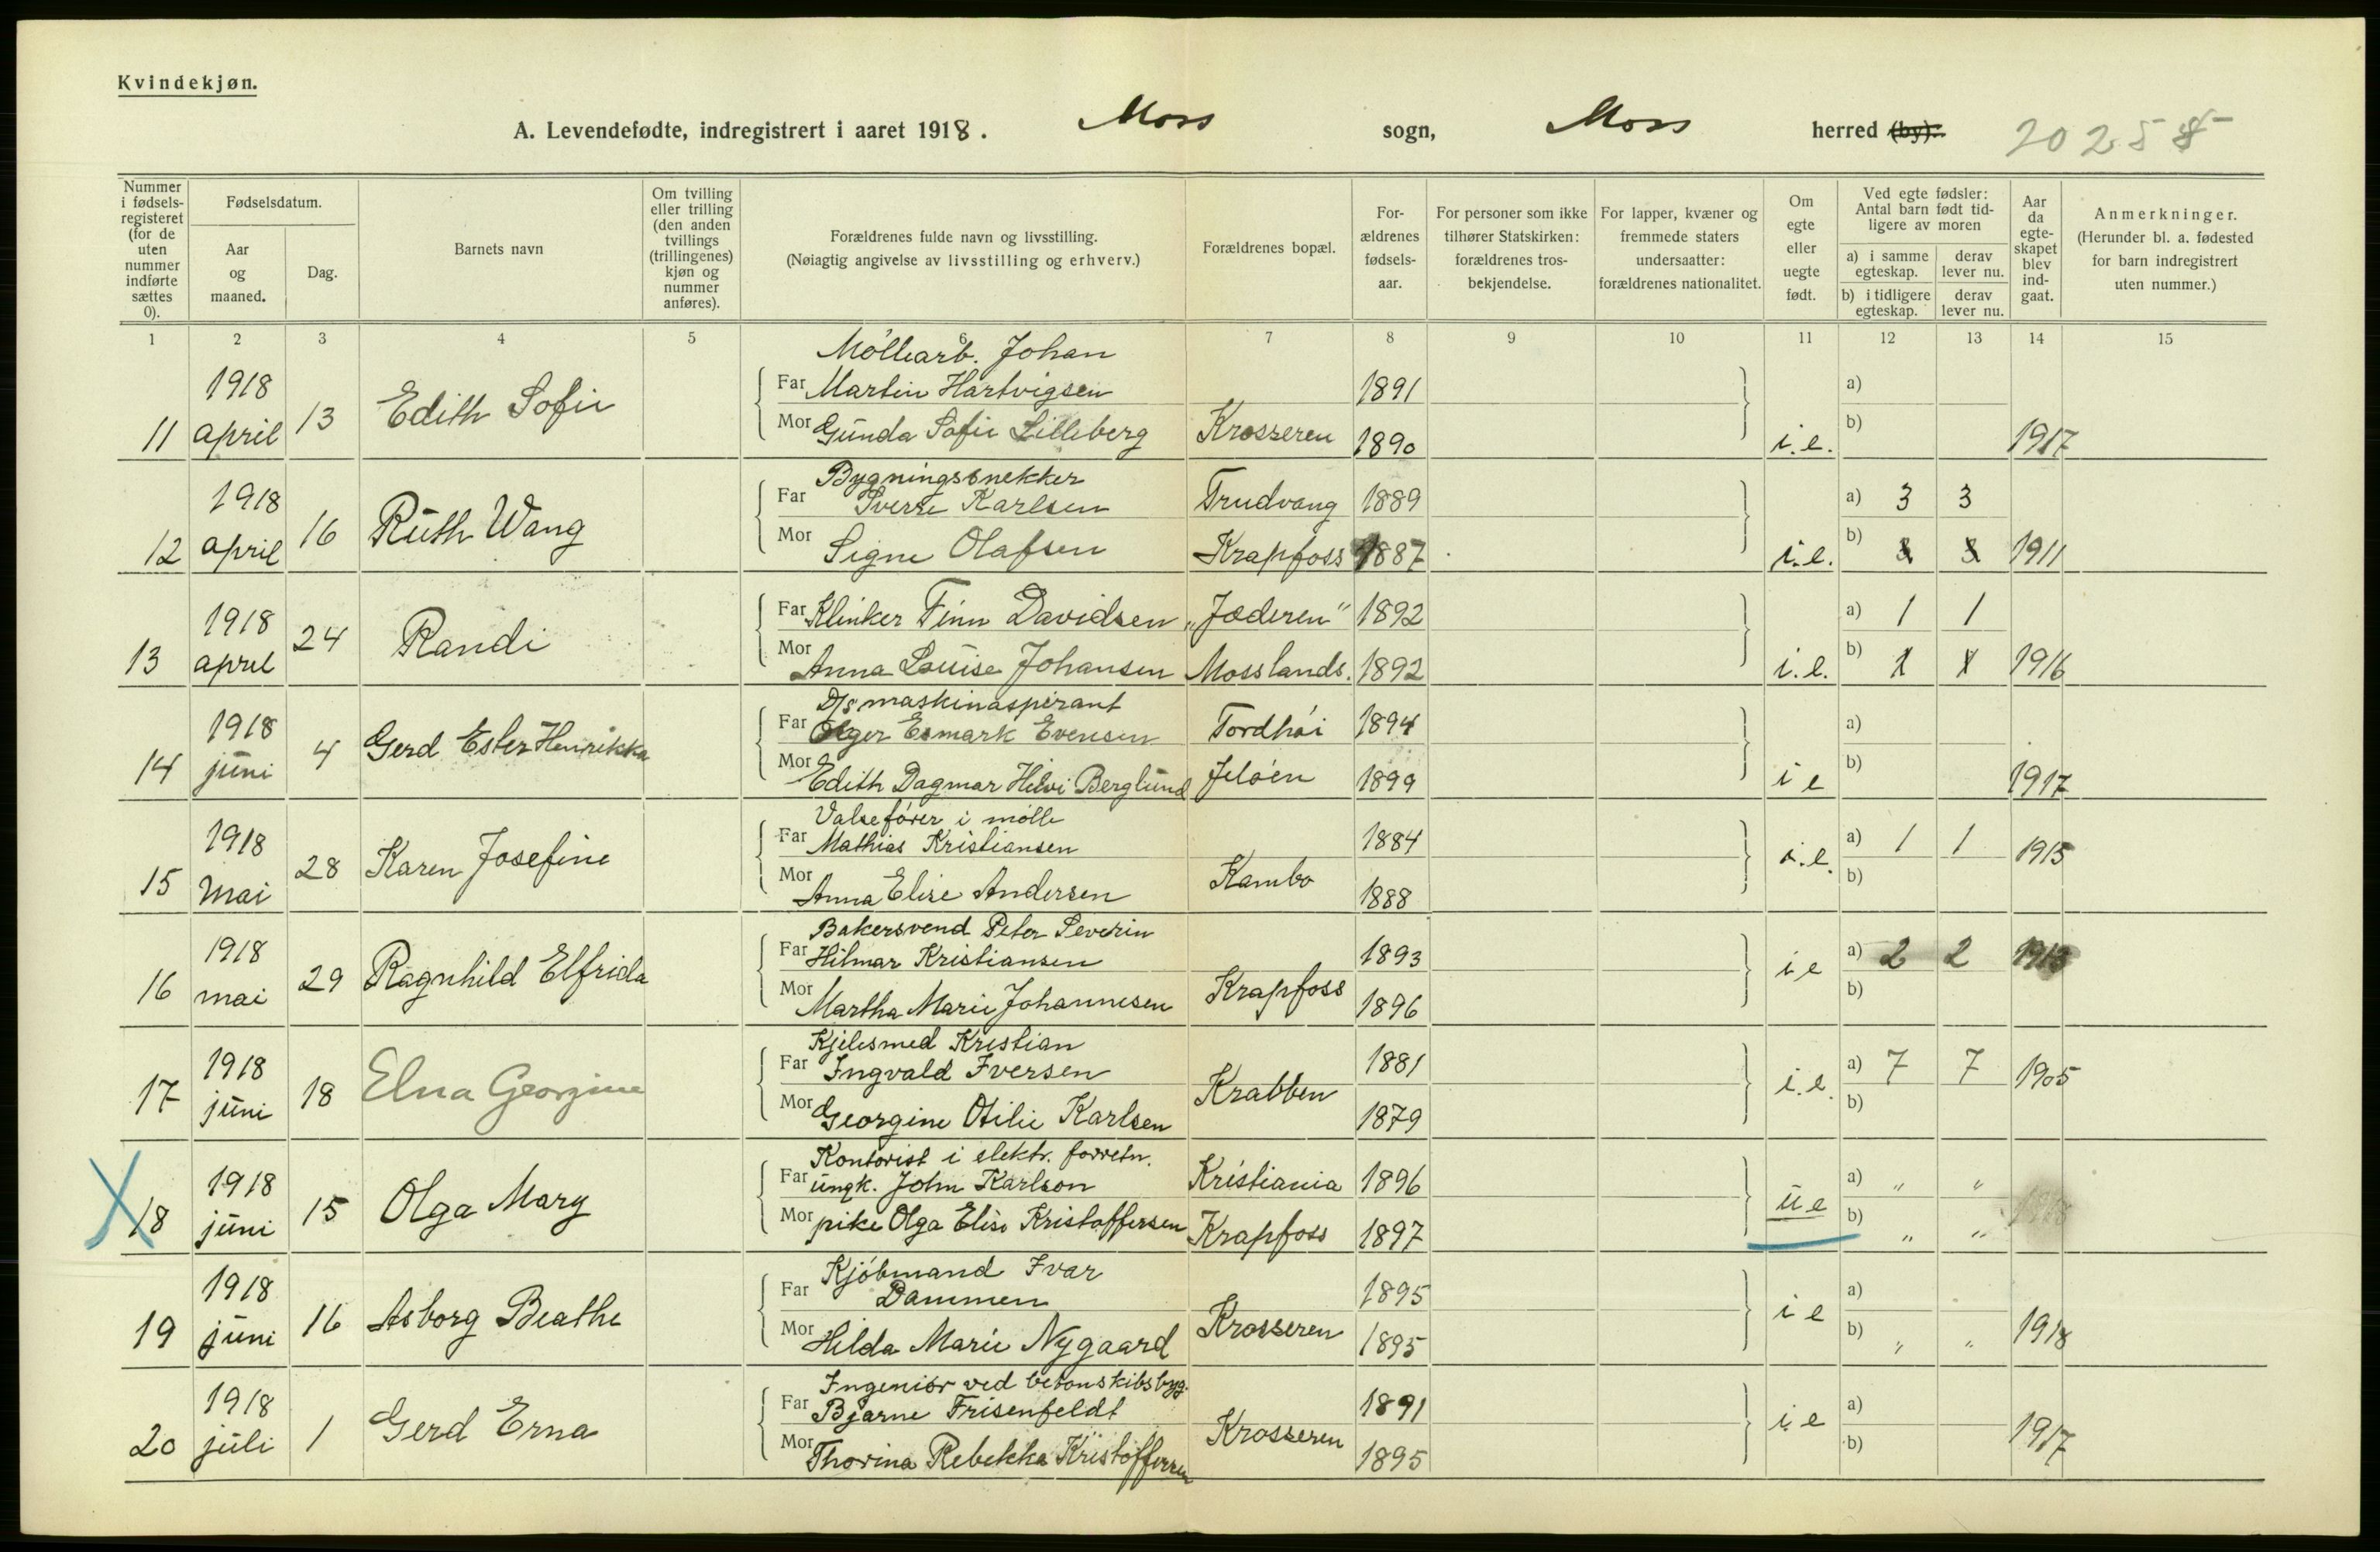 Kvindekjøn.
A. Levendefødte, indregistrert i aaret 1918. Moss sogn, Moss herred (by).
Nummer i fødselsregisteret (for de uten nummer indførte sættes 0).
Fødselsdatum.
Aar og maaned.
Dag.
Barnets navn
Om tvilling eller trilling (den anden tvillings (trillingenes) kjøn og nummer anføres).
Forældrenes fulde navn og livsstilling.
(Nøiagtig angivelse av livsstilling og erhverv.)
Forældrenes bopæl.
Forældrenes fødselsaar.
For personer som ikke tilhører Statskirken: forældrenes trosbekjendelse.
For lapper, kvæner og fremmede staters undersaatter: forældrenes nationalitet.
Om egte eller uegte født.
Ved egte fødsler: Antal barn født tidligere av moren
a) i samme egteskap.
derav lever nu.
b) i tidligere egteskap.
derav lever nu.
Aar da egteskapet blev indgaat.
Anmerkninger.
(Herunder bl. a. fødested for barn indregistrert uten nummer.)
1 2 3 4 5 6 7 8 9 10 11 12 13 14 15
Möllearb. Johan
1918 Far Martin Hartvigsen 1891 a)
11 april 13 Edith Sofie Mor Gunda Sofie Lilleberg Krosseren 1890 i.e. b) 1917
Bygningssnekker
1918 Far Sverre Karlsen Trudvang 1889 a) 3 3
12 april 16 Ruth Wang Mor Signe Olafsen Krapfoss 1887 i.e. b) 3 3 1911
1918 Far Klinker Finn Davidsen „Jæderen" 1892 a) 1 1
13 april 24 Randi Mor Anna Louise Johansen Mosslands. 1892 i.e. b) 1 1 1916
D/s maskinaspirant
1918 Far Esmark Evensen Tordhöi 1894 a)
14 juni 4 Gerd Ester Henrikka Mor Edith Dagmar Helvi Berglund Jelöen 1899 i e b) 1917
Valsefører i mölle
1918 Far Mathias Kristiansen 1884 a) 1 1 1915
15 Mai 28 Karen Josefine Mor Anna Elise Andersen Kambo 1888 i.e. b)
Bakersvend Peter Severin
1918 Far Hilmar Kristiansen 1893 a) 2 2 1913
16 mai 29 Ragnhild Elfrida Mor Martha Marie Johannesen Krapfoss 1896 i e b)
Kjelesmed Kristian
1918 Far Ingvald Iversen 1881 a) 7 7 1905
17 juni 18 Elna Georgine Mor Georgine Otilie Karlsen Krabben 1879 i.e. b)
Kontorist i elektr. forretn.
1918 Far ungk. John Karlson Kristiania 1896 a) „ „
18 juni 15 Olga Mary Mor pike Olga Elise Kristoffersen Krapfoss 1897 u e b) „ „
Kjöbmand Ivar
1918 Far Dammen 1895 a)
19 juni 16 Asborg Beathe Mor Hilda Marie Nygaard Krosseren 1895 i e b) „ „ 1918
Ingeniör ved betonskibsbyg.
1918 Far Bjarne Frisenfeldt 1891 a)
20 juli 1 Gerd Erna Mor Thorina Rebekka Kristoffersen Krosseren 1895 i e b) 1917